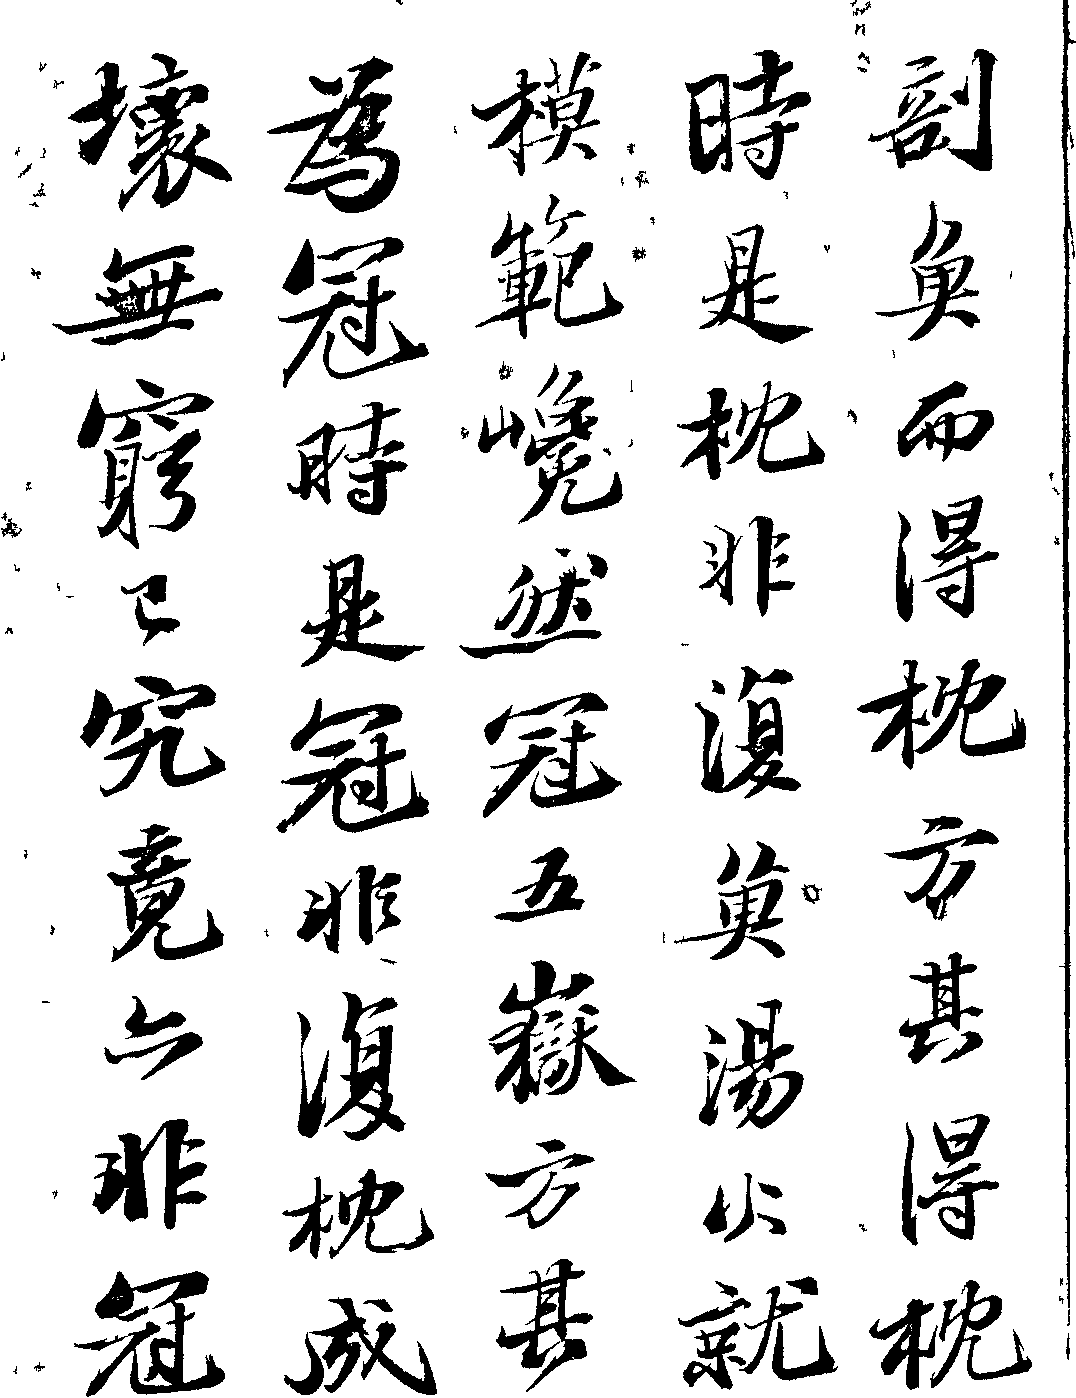 剖魚而得枕方其得枕
時是枕非復魚湯火就
模範巉然冠五嶽方其
為冠時是冠非復枕成
壞無窮已究竟亦非冠